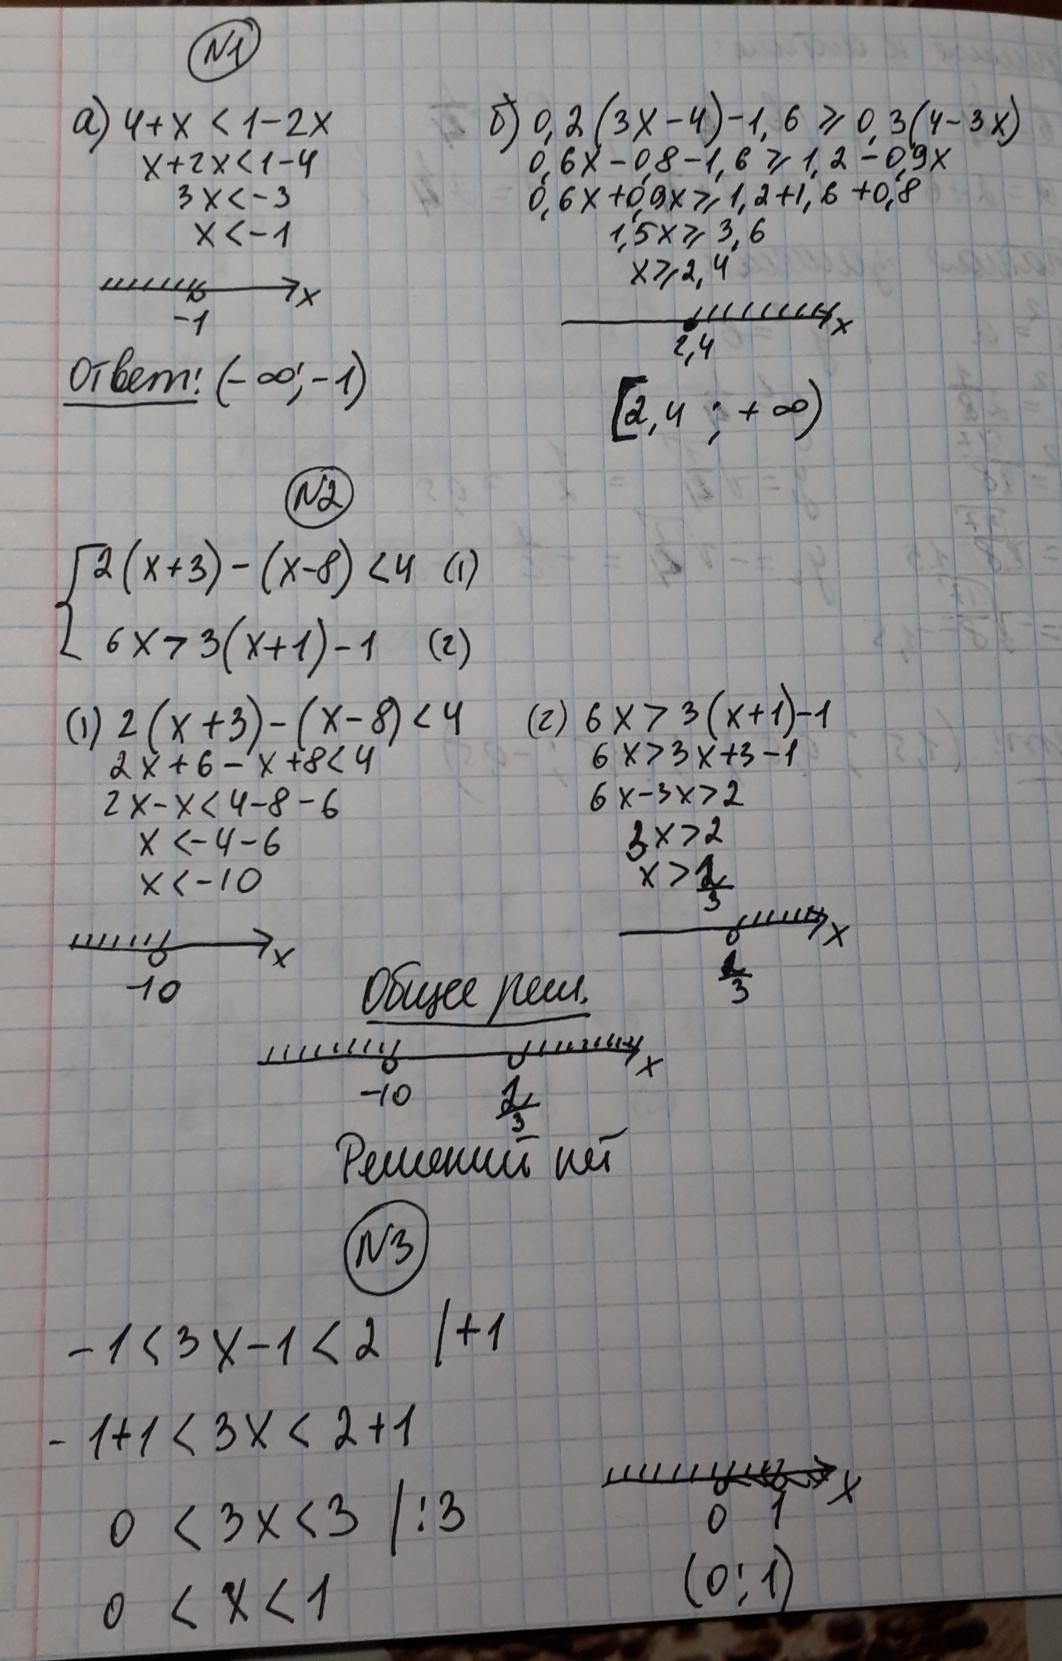 N1
а) 4+x < 1-2x
x+2x<1-4
3x<-3
x<-1
x
-1
Ответ: (-∞; -1)
б) 0,2(3x-4)-1,6 ⩾ 0,3(4-3x)
0,6x-0,8-1,6 ⩾ 1,2-0,9x
0,6x+0,9x ⩾ 1,2+1,6+0,8
1,5x ⩾ 3,6
x ⩾ 2,4
x
2,4
[2,4 ; +∞)
N2
2(x+3)-(x-8)<4 (1)
6x>3(x+1)-1 (2)
(1) 2(x+3)-(x-8)<4
2x+6-x+8<4
2x-x<4-8-6
x<-4-6
x<-10
x
-10
(2) 6x>3(x+1)-1
6x>3x+3-1
6x-3x>2
3x>2
x>2/3
x
2/3
Общее реш.
x
-10 2/3
Решений нет
N3
-1<3x-1<2 /+1
-1+1<3x<2+1
0<3x<3 /:3
0<x<1
x
0 1
(0;1)